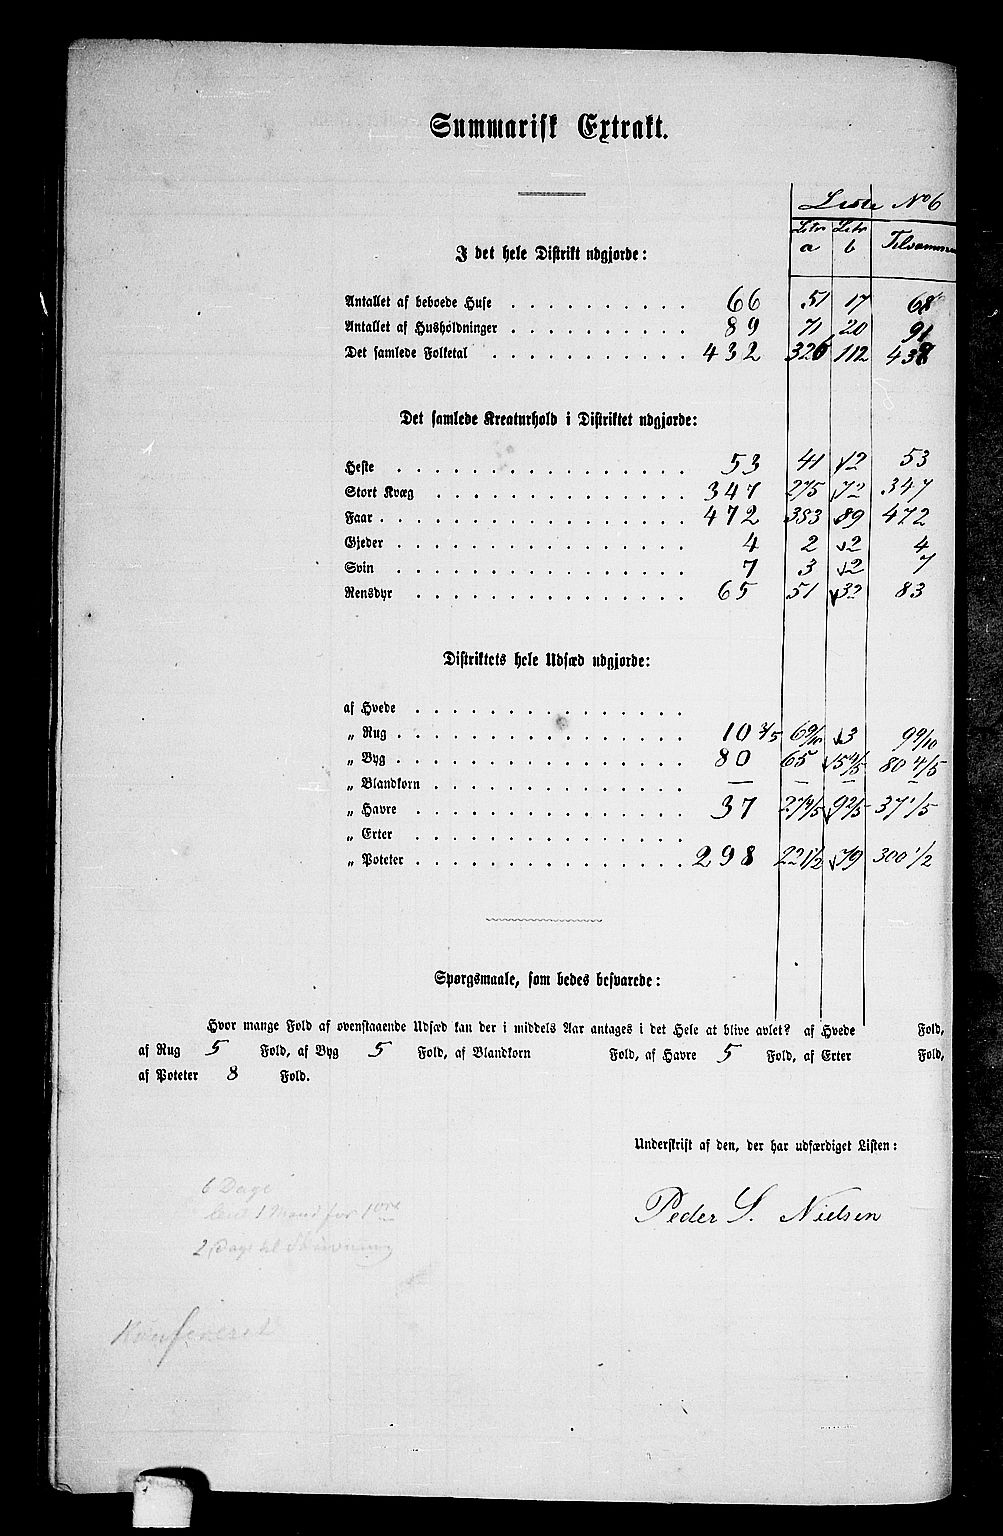 Summarisk Extrakt.
Liste No 6
Litr a Litr b Tilsammen
I det hele Distrikt udgjorde:
Antallet af beboede Huse . . . . . . . . . . 66 51 17 68
Antallet af Husholdninger . . . . . . . . . . 89 71 20 91
Det samlede Folketal . . . . . . . . . . . 432 326 112 438
Det samlede Kreaturhold i Distriktet udgjorde:
Heste . . . . . . . . . . . . . . . . 53 41 12 53
Stort Kvæg . . . . . . . . . . . . . . 347 275 72 347
Faar . . . . . . . . . . . . . . . . . 472 383 89 472
Gjeder . . . . . . . . . . . . . . . . 4 2 2 4
Svin . . . . . . . . . . . . . . . . 7 3 2 7
Rensdyr . . . . . . . . . . . . . . . 65 51 32 83
Distriktets hele Udsæd udgjorde:
af Hvede . . . . . . . . . . . . . . .
„ Rug . . . . . . . . . . . . . . . . 10 3/5 6 9/10 3 9 9/10
„ Byg . . . . . . . . . . . . . . . . 80 65 15 4/5 80 4/5
„ Blandkorn . . . . . . . . . . . . . . — — — —
„ Havre . . . . . . . . . . . . . . . 37 27 4/5 9 2/5 37 1/5
„ Erter . . . . . . . . . . . . . . .
„ Poteter . . . . . . . . . . . . . . . 298 221 1/2 79 300 1/2
Spørgsmaale, som bedes besvarede:
Hvor mange Fold af ovenstaaende Udsæd kan der i middels Aar antages i det Hele at blive avlet? af Hvede Fold,
af Rug 5 Fold, af Byg 5 Fold, af Blandkorn Fold, af Havre 5 Fold, af Erter Fold,
af Poteter 8 Fold.
Underskrift af den, der har udfærdiget Listen:
Peder S. Nielsen
6 Dage
1 Mand for
2 Dage til Skrivning
Konfereret